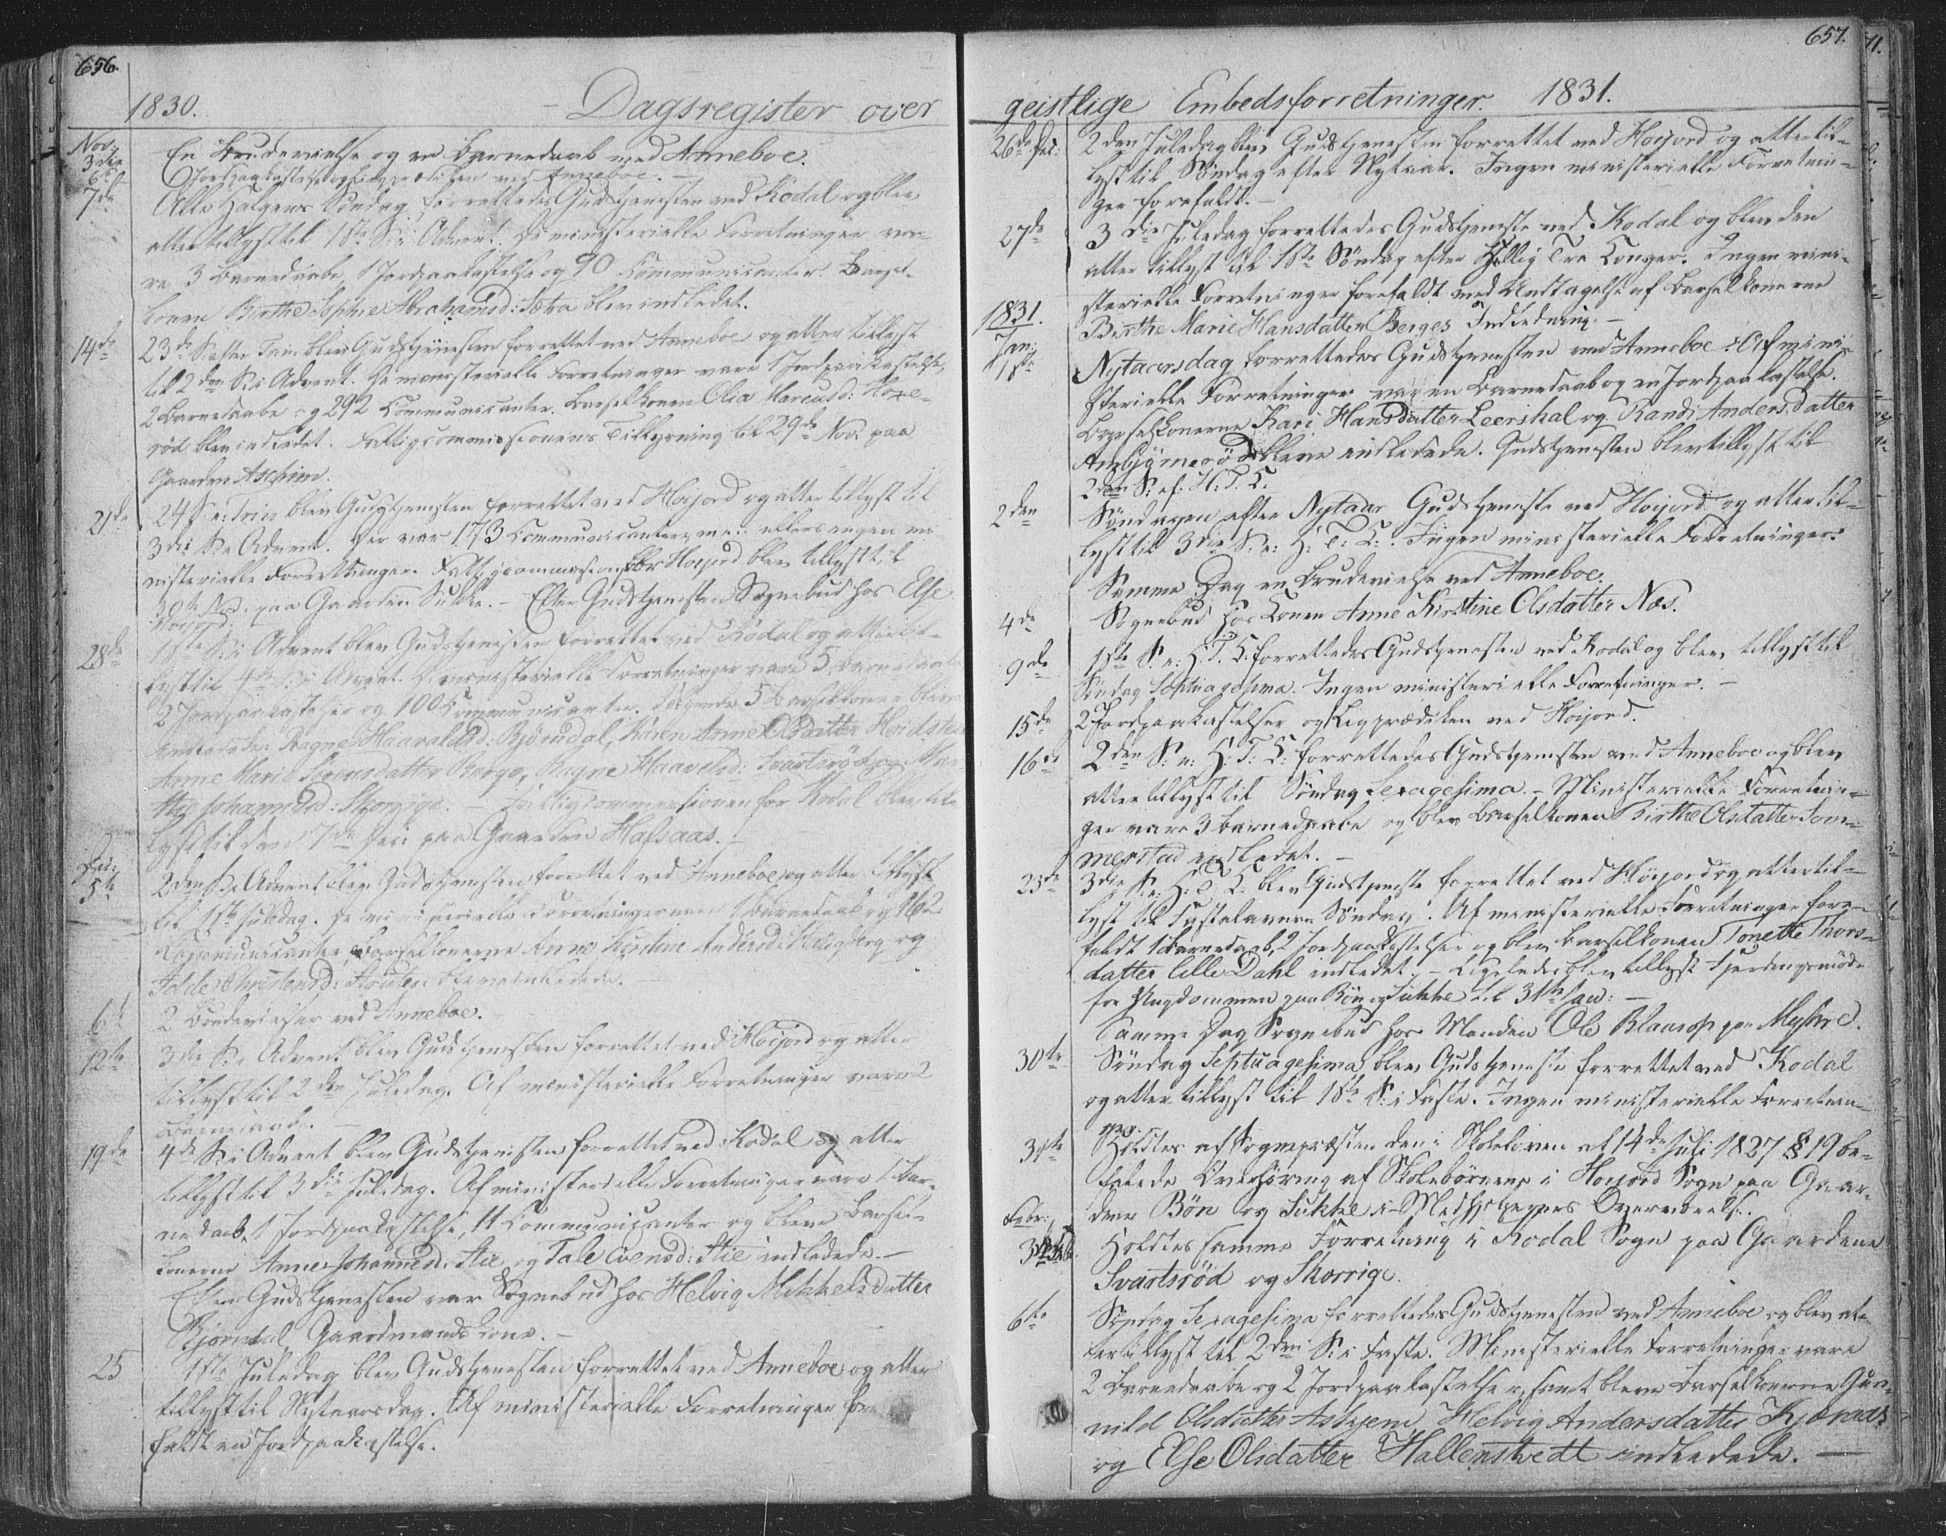 656.
1830. Dagsregister over
Nov.
3die En Brudevielse og en Barnedaab ved Anneboe.
6te Jordpaakastelse og Ligprædiken ved Anneboe. —
7de Alle Helgens Søndag forrettedes Gudstjenesten ved Kodal og blev
atter tillyst til 1ste S. i Advent. De ministerielle Forretninger va-
re 3 Barnedaabe, 1 Jordpaakastelse og 90 Communicanter. Barsel-
konen Birthe Sophie Abrahamsd: blev indledet.
14de 23de S. efter Trin: blev Gudstjenesten forrettet ved Anneboe og atter tillyst
til 2den S. i Advent. De ministerielle Forretninger vare 1 Jordpaakastelse,
2 Barnedaabe og 292 Communicanter. Barselkonen Olia Marcusd:
rød blev indledet. Fattigcommissionens til 29de Nov. paa
Gaarden Aschim.
21de 24 S. e: Trin blev Gudstjenesten forrettet ved Høijord og atter tillyst til
3die S. i Advent. Der var 173 Communicanter, ellers ingen mi-
nisterielle Forretninger. Fattigcommission for Høijord blev tillyst til
30te Nov. paa Gaarden Sukke. — Efter Gudstjenesten Sognebud hos Else
Høijord.
28de 1ste S. i Advent blev Gudstjenesten forrettet ved Kodal og atter til-
lyst til 4de S. i Advent. De ministerielle Forretninger vare 5 Barnedaabe
2 Jordpaakastelser og 100 Communicanter. Følgende 5 Barselkoner bleve
indledede: Ragne Haavaldsd: Bjørndal, Karen Anne Olsdatter
Anne Marie Sørensdatter Berge, Ragne Haavelsd: Svartsrød og Mar-
the Johannesd: Skorrige. — Fattigcommissionen for Kodal blev til-
lyst til den 7de paa Gaarden Halsaas. —
Dec:
5te 2den S. i Advent blev Gudstjenesten forrettet ved Anneboe og atter tillyst
til 1ste Juledag. De ministerielle Forretninger vare 1 Barnedaab og
Communicanter, Barselkonerne Anne Kirstine Andersd: og
Christensd: bleve indledede. —
6te 2 Brudevielser ved Anneboe.
12te 3die S. i Advent blev Gudstjenesten forrettet ved Høijord og atter
tillyst til 2den Juledag. Af ministerielle Forretninger var
Barnedaab. —
19de 4de S. i Advent blev Gudstjenesten forrettet ved Kodal og atter
tillyst til 3die Juledag. Af ministerielle Forretninger vare 1 Bar-
nedaab, 1 Jordpaakastelse, 11 Communicanter og bleve Barsel-
konerne Anne Johannesd: Stie og Tale Svensd: Stie indledede. —
Efter Gudstjenesten var Sognebud hos Helvig Mikkelsdatter
Bjørndal, Gaardmands Kone. —
25 1ste Juledag blev Gudstjenesten forrettet ved Anneboe og atter
tillyst til Nytaarsdag. Af ministerielle Forretninger fore-
faldt en Jordpaakastelse.
657.
geistlige Embedsforretninger. 1831.
26de Dec: 2den Juledag blev Gudstjenesten forrettet ved Høijord og atter til-
lyst til Søndag efter Nytaar. Ingen ministerielle Forretnin-
ger forefaldt. —
27de 3die Juledag forrettedes Gudstjeneste ved Kodal og blev den
atter tillyst til 1ste Søndag efter Hellig Tre Konger. Ingen mini-
sterielle Forretninger forefaldt med Undtagelse af Barselkonerne
1831. Birthe Marie Hansdatter Berges Indledning. —
Jan:
1ste Nytaarsdag forrettedes Gudstjenesten ved Anneboe. Af mini-
sterielle Forretninger var en Barnedaab og en Jordpaakastelse.
Barselkonerne Kari Hansdatter Leerskal og Randi Andersdatter
Anbjørnerød bleve indledede. Gudstjenesten blev tillyst til
2den S: ef: H: T: K.
2den Søndagen efter Nytaar Gudstjeneste ved Høijord og atter til-
lyst til 3die S. e: H: T: K: Ingen ministerielle Forretninger.
Samme Dag en Brudevielse ved Anneboe.
4de Sognebud hos Konen Anne Kirstine Olsdatter Næs.
9de 1ste S. e: H. T. K. forrettedes Gudstjenesten ved Kodal og blev tillyst til
Søndag Septuagesima. Ingen ministerielle Forretninger. —
15de 2 Jordpaakastelser og Ligprædiken ved Høijord.
16de 2den S: e: H: T: K: forrettedes Gudstjenesten ved Anneboe og blev
atter tillyst til Søndag Sexagesima. — Ministerielle Forretnin-
ger vare 3 Barnedaabe og blev Barselkonen Birthe Olsdatter Som-
merstad indledet. —
23de 3die S. e: H: T: K. blev Gudstjeneste forrettet ved Høijord og atter til-
lyst til Fastelavns Søndag. Af ministerielle Forretninger fore-
faldt 1 Barnedaab, 2 Jordpaakastelser og blev Barselkonen Tonette Thors-
datter lille Dahl indledet. — Ligeledes blev tillyst
for Ungdommen paa Bøn og Sukke til 31te Jan: —
Samme Dag Sognebud hos Manden Ole paa
30te Søndag Septuagesima blev Gudstjeneste forrettet ved Kodal
og atter tillyst til 1ste S: i Faste. Ingen ministerielle Forretnin-
ger.
31te Holdtes af Sognepræsten den i Skoleloven af 14de Juli 1827 § 19 be-
falede Overhøring af Skolebørnene i Høijord Sogn paa Gaar-
dene Bøn og Sukke i Medhjelpernes Overværelse.
Febr:
3die Holdtes samme Forretning i Kodal Sogn paa Gaardene
Svartsrød og Skorrige.
6te Søndag Sexagesima forrettedes Gudstjenesten ved Anneboe og blev at-
ter tillyst til 2den S: i Faste. Ministerielle Forretninger vare
2 Barnedaabe og 2 Jordpaakastelser, samt bleve Barselkonerne Gun-
nild Olsdatter Askjem, Helvig Andersdatter Kjæraas
og Else Olsdatter Hallenstvedt indledede. —